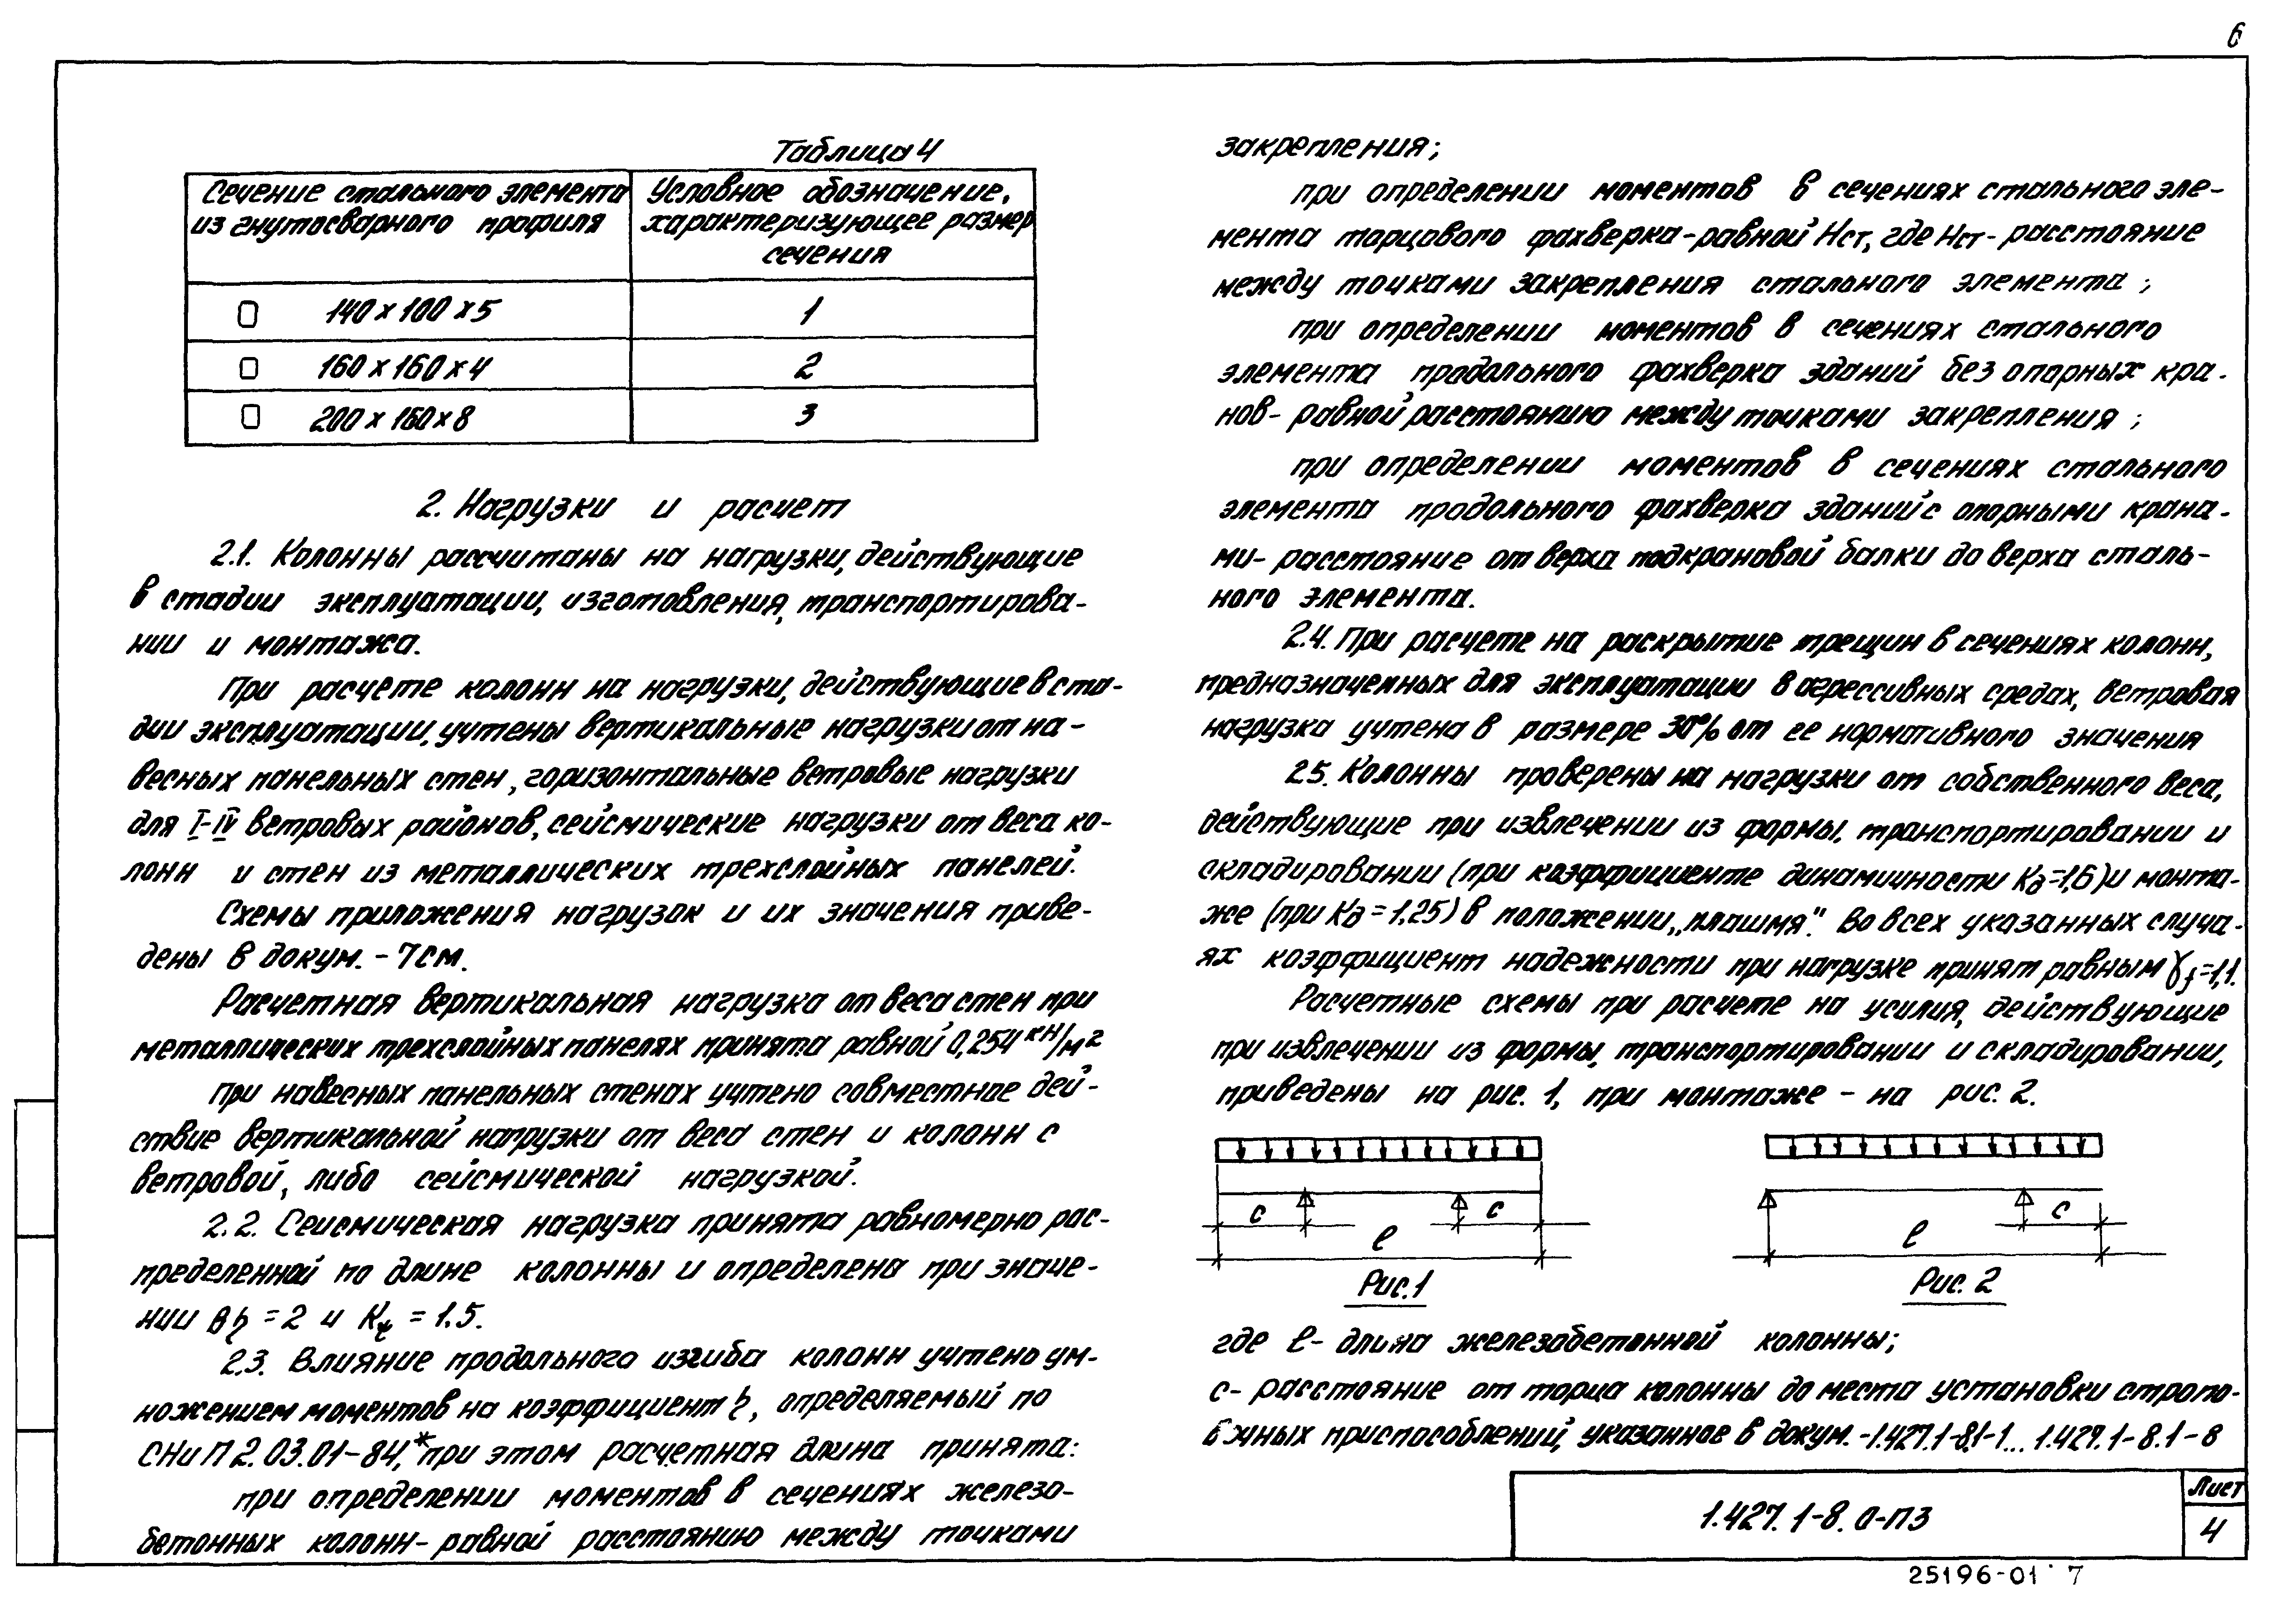 6
Таблица 4
Сечение стального элемента
из гнутосварного профиля
Условное обозначение,
характеризующее размер
сечения
140 х 100 х 5
1
160 х 160 х 4
2
200 х 160 х 8
3
2. Нагрузки и расчет
2.1. Колонны рассчитаны на нагрузки, действующие
в стадии эксплуатации, изготовления, транспортирова-
нии и монтажа.
При расчете колонн на нагрузки, действующие в ста-
дии эксплуатации, учтены вертикальные нагрузки от на-
весных панельных стен, горизонтальные ветровые нагрузки
для I-IV ветровых районов, сейсмические нагрузки от веса ко-
лонн и стен из металлических трехслойных панелей.
Схемы приложения нагрузок и их значения приве-
дены в докум. - 7см.
Расчетная вертикальная нагрузка от веса стен при
металлических трехслойных панелях принята равной 0,254 кН/м²
При навесных панельных стенах учтено совместное дей-
ствие вертикальной нагрузки от веса стен и колонн с
ветровой, либо сейсмической нагрузкой.
2.2. Сейсмическая нагрузка принята равномерно рас-
пределенной по длине колонны и определена при значе-
нии βη = 2 и Kψ = 1.5.
2.3. Влияние продольного изгиба колонн учтено ум-
ножением моментов на коэффициент η, определяемый по
СНиП 2.03.01-84,* при этом расчетная длина принята:
при определении моментов в сечениях железо-
бетонных колонн - равной расстоянию между точками
закрепления;
при определении моментов в сечениях стального эле-
мента торцового фахверка - равной Нст, где Нст - расстояние
между точками закрепления стального элемента;
при определении моментов в сечениях стального
элемента продольного фахверка зданий без опорных кра-
нов - равной расстоянию между точками закрепления;
при определении моментов в сечениях стального
элемента продольного фахверка зданий с опорными крана-
ми - расстояние от верха подкрановой балки до верха сталь-
ного элемента.
2.4. При расчете на раскрытие трещин в сечениях колонн,
предназначенных для эксплуатации в агрессивных средах, ветровая
нагрузка учтена в размере 30% от ее нормативного значения
2.5. Колонны проверены на нагрузки от собственного веса,
действующие при извлечении из формы, транспортировании и
складировании (при коэффициенте динамичности Кд=1,6) и монта-
же (при Кд = 1,25) в положении „плашмя". Во всех указанных случа-
ях коэффициент надежности при нагрузке принят равным γf=1,1.
Расчетные схемы при расчете на усилия, действующие
при извлечении из формы, транспортировании и складировании,
приведены на рис. 1, при монтаже - на рис. 2.
c
c
ℓ
Рис.1
c
ℓ
Рис. 2
где ℓ - длина железобетонной колонны;
с - расстояние от торца колонны до места установки стропо-
вочных приспособлений, указанное в докум. -1.427.1-8.1-1... 1.427.1-8.1-8
1.427.1-8.0-ПЗ
Лист
4
25196-01 7